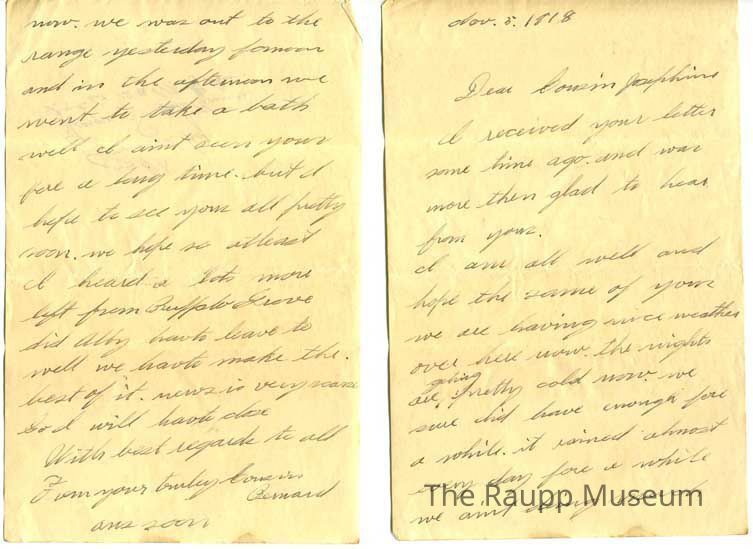 Nov. 5. 1918
Dear Cousin Josephine
I received your letter
some time ago. and was
more then glad to hear
from your.
I am all well and
hope the same of your
we are having nice weather
over here now. the nights
are getting pretty cold now. we
sure did have enough fore
a while. it rained almost
every day fore a while
we aint
The Raupp Museum
now. we was out to the
range yesterday fornoon
and in the afternoon we
went to take a bath
well I aint seen your
fore a long time. but I
hope to see your all pretty
soon. we hope so atleast
I heard a lots more
left from Buffalo Grove
did Alby havto leave to
well we havto make the.
best of it. news is very scarce
So I will havto close
With best regards to all
From your truley Cousin
Bernard
ans soon